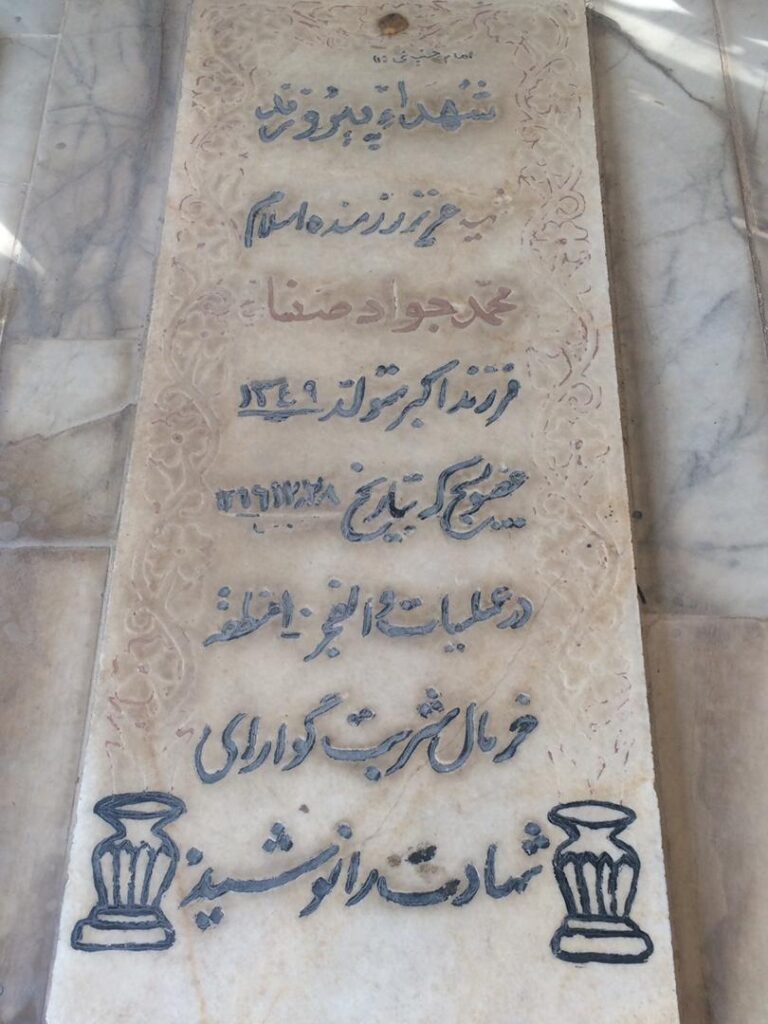 امام خمینی (ره)
شهداء پیروزند
شهید عزیز رزمنده اسلام
محمد جواد صفا
فرزند اکبر متولد ۱۳۴۹
عضو بسیج که بتاریخ ۱۳۶۶/۱۲/۲۸
در عملیات والفجر ۱۰ منطقه
خرمال شربت گوارای
شهادت را نوشید